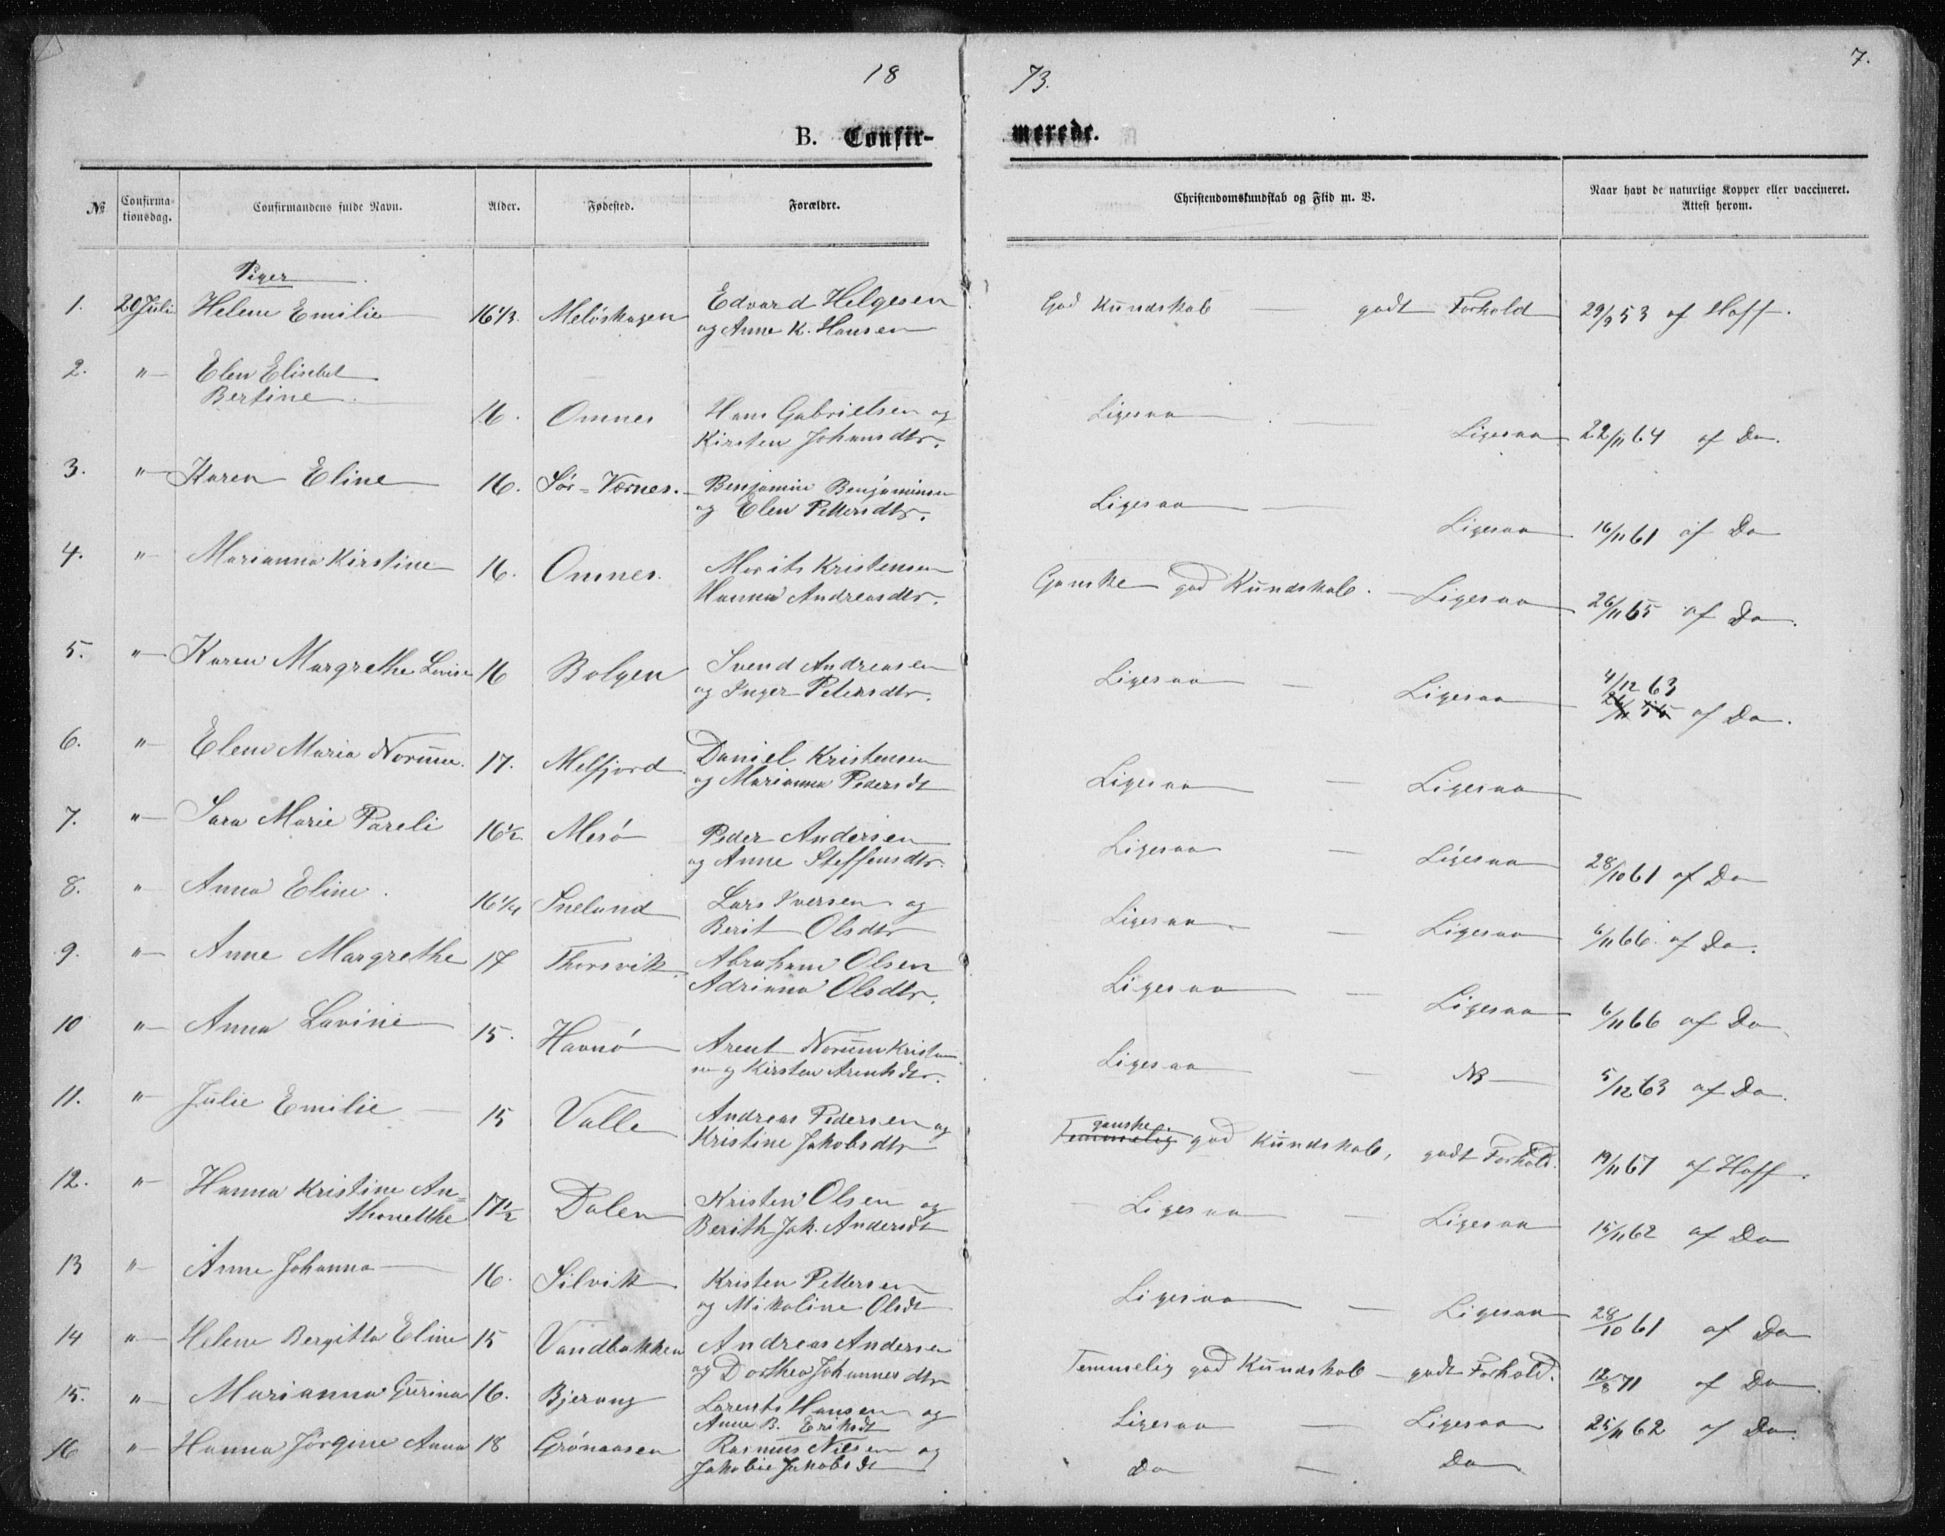 18 73. 7.
B. Confir- merede.
№ Confirma-tionsdag. Confirmandens fulde Navn. Alder. Fødested. Forældre. Christendomskundskab og Flid m. V. Naar havt de naturlige Kopper eller vaccineret. Attest herom.
Piger
1. 20 Juli Helene Emilie 16 1/3. Meløskagen Edvard Helgesen God Kundskab — godt Forhold 29/9 53 af Hoff.
og Anne K. Hansen
2. " Elen Elisebet
Bertine 16. Omnes Hans Gabrielsen og Ligesaa — Ligesaa 22/11 64 af Do.
Kirsten Johansdtr.
3. " Karen Eline 16. Sør-Værnes. Benjamin Benjaminsen Ligesaa — Ligesaa 16/11 61 af Do
og Elen Pettersdtr.
4. " Marianna Kirstine 16. Omnes. Morits Kristensen Ganske god Kundskab. — Ligesaa 26/11 65 af Do.
Hanna Andreasdtr.
5. " Karen Margrethe Lovise 16 Bolgen Svend Andreasen Ligesaa — Ligesaa 4/12 63
og Inger Petersdtr. af Do.
6. " Elene Maria Norum. 17. Melfjord Daniel Kristensen Ligesaa — Ligesaa
og Marianna Pedersdt
7. " Sara Marie Pareli 16 1/2 Mesø Peder Andersen Ligesaa — Ligesaa 28/10 61 af Do
og Anne Steffensdtr.
8. " Anna Eline. 16 1/4 Sneland Lars Iversen og Ligesaa — Ligesaa 6/11 66. af Do.
Berit Olsdtr
9. " Anne Margrethe 17 Thorsvik Abraham Olsen Ligesaa — Ligesaa 6/11 66 af Do
Adriana Olsdtr.
10 " Anna Lavine 15. Havnø Arent Norum Kristen- Ligesaa — NB 5/12 63 af Do.
sen og Kirsten Arentsdtr.
11. " Julie Emilie — 15 Valle Andreas Pedersen og Temmelig ganske god Kundskab, godt Forhold. 19/11 67 af Hoff.
Kristine Jakobsdtr
12. " Hanna Kristine An= 17 1/2 Dalen Kristen Olsen og Ligesaa — Ligesaa 15/11 62 af Do
thonetthe Berith Joh. Andersdt
13 " Anne Johanna — 16. Silvik Kristen Pettersen Ligesaa — Ligesaa 28/10 61 af Do
og Nikoline Olsdt
14 " Helene Bergitta Eline 15 Vandbakken Andreas Andersen Temmelig god Kundskab — godt Forhold. 12/8 71 af Do.
og Dorthea Johannesdtr
15. " Marianna Gurina 16. Bjerang Lorents Hansen og Ligesaa — Ligesaa 25/11 62 af Do.
Anne B. Eriksdt
16 " Hanna Jørgine Anna 18 Grønaasen Rasmus Nilsen og Do — Do
Jakobie Jakobsdt